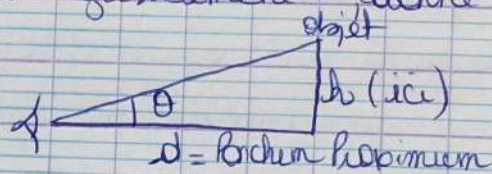 objet
θ
h (ici)
d = Ponctum Proximum